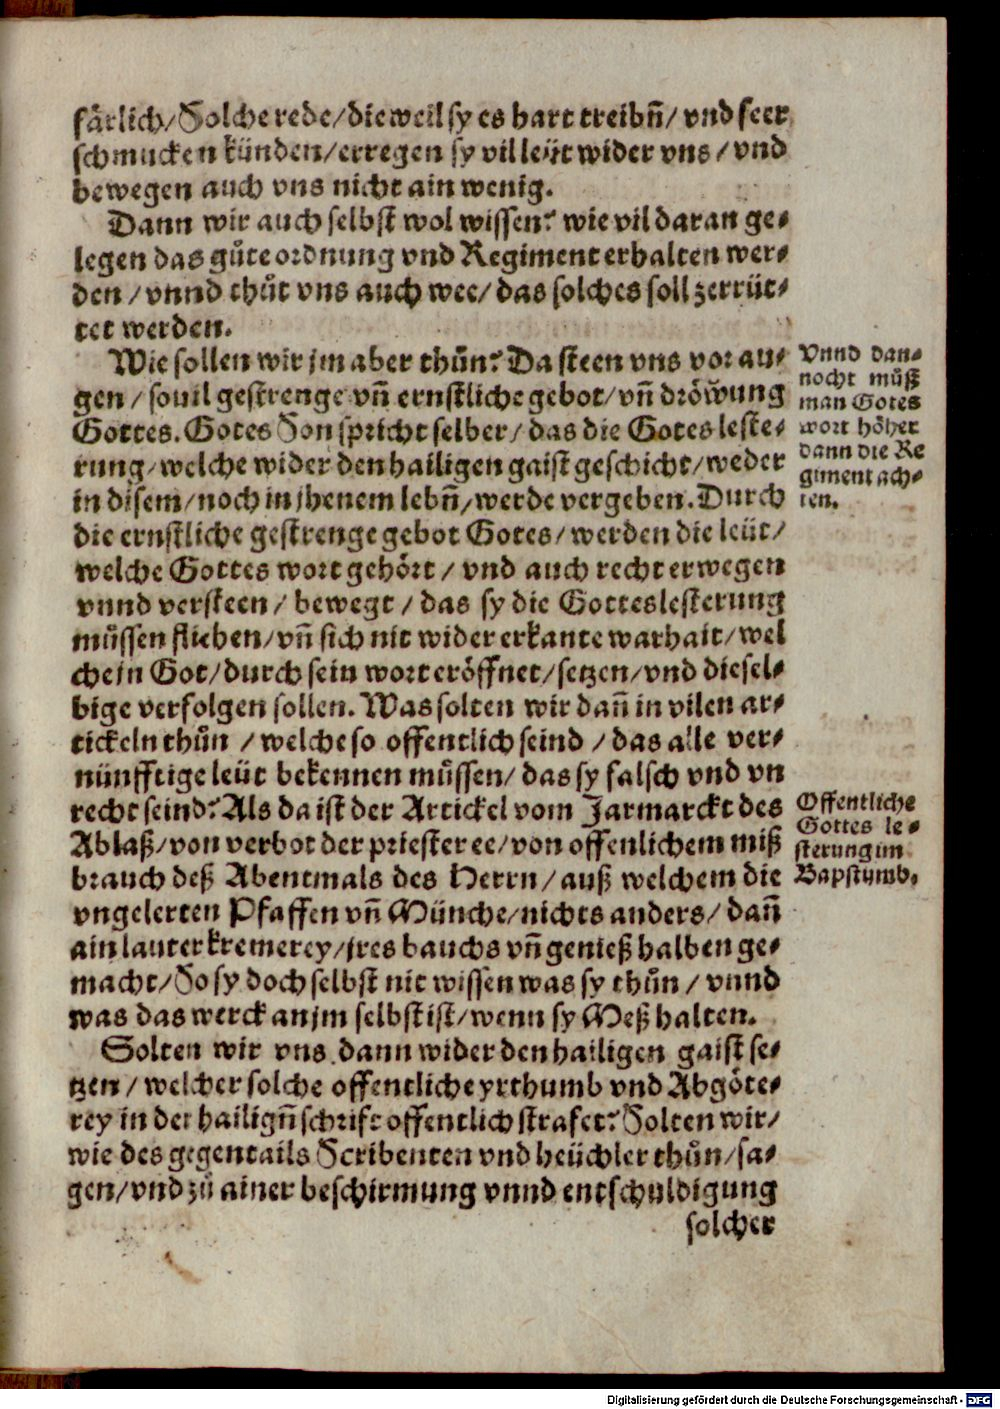 färlich/ Solche rede/ die weil sy es hart treibñ/ vnd seer
schmucken künden/ erregen sy vil leüt wider vns/ vnd
bewegen auch vns nicht ain wenig.
Dann wir auch selbst wol wissen? wie vil daran ge⸗
legen das gůte ordnung vnd Regiment erhalten wer⸗
den/ vnnd thůt vns auch wee/ das solches soll zerrüt⸗
tet werden.
Wie sollen wir jm aber thůn? Da steen vns vor au⸗
gen/ souil gestrenge vñ ernstliche gebot/ vñ dröwung
Gottes. Gotes Son spricht selber/ das die Gotes leste⸗
rung/ welche wider den hailigen gaist geschicht/ weder
in disem/ noch in jhenem lebñ/ werde vergeben. Durch
die ernstliche gestrenge gebot Gotes/ werden die leüt/
welche Gottes wort gehört/ vnd auch recht erwegen
vnnd versteen/ bewegt/ das sy die Gotteslesterung
müssen fliehen/ vñ sich nit wider erkante warhait/ wel
che jn Got/ durch sein wort eröffnet/ setzen/ vnd diesel⸗
bige verfolgen sollen. Was solten wir dañ in vilen ar⸗
tickeln thůn/ welche so offentlich seind/ das alle ver⸗
nünfftige leüt bekennen müssen/ das sy falsch vnd vn
recht seind? Als da ist der Artickel vom Jarmarckt des
Ablaß/ von verbot der priester ee/ von offenlichem miß
brauch deß Abentmals des Herrn/ auß welchem die
vngelerten Pfaffen vñ Münche/ nichts anders/ dañ
ain lauter kremerey/ jres bauchs vñ genieß halben ge⸗
macht/ So sy doch selbst nit wissen was sy thůn/ vnnd
was das werck an jm selbst ist/ wenn sy Meß halten.
Solten wir vns dann wider den hailigen gaist se⸗
tzen/ welcher solche offentliche yrthumb vnd Abgöte⸗
rey in der hailigñ schrift offentlich strafet? Solten wir/
wie des gegentails Scribenten vnd heüchler thůn/ sa⸗
gen/ vnd zů ainer beschirmung vnnd entschuldigung
solcher
Vnnd dan⸗
nocht müß
man Gotes
wort höher
dann die Re
giment ach⸗
ten.
Offentliche
Gottes le⸗
sterung im
Bapstumb.
Digitalisierung gefördert durch die Deutsche Forschungsgemeinschaft - DFG